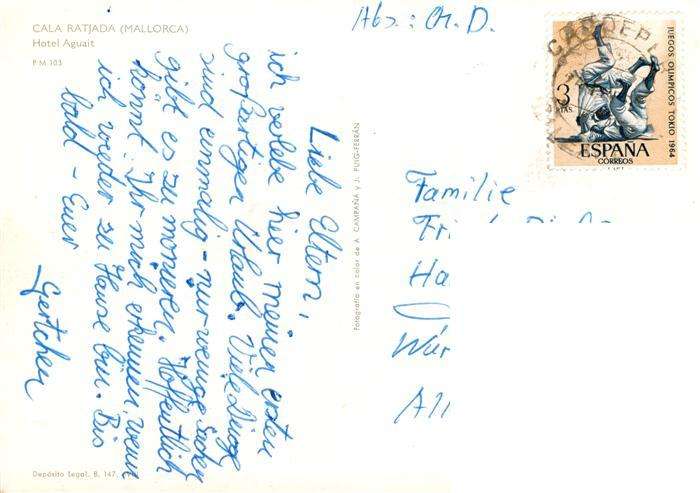 CALA RATJADA (MALLORCA)
Hotel Aguait
P M 103
Liebe Eltern,
ich verlebe hier meinen ersten
großartigen Urlaub. Viele Dinge
sind einmalig - nur wenige Sachen
gibt es zu monieren. Hoffentlich
könnt Ihr mich erkennen, wenn
ich wieder zu Hause bin. Bis
bald - Euer
Gertchen
Depósito Legal, B. 147.
Fotografía en color de A. CAMPAÑA y J. PUIG-FERRÁN
Abs.: G. D.
3
PTAS.
JUEGOS OLIMPICOS TOKIO 1964
ESPAÑA
CORREOS
Familie
Fri
Ha
Wür
All